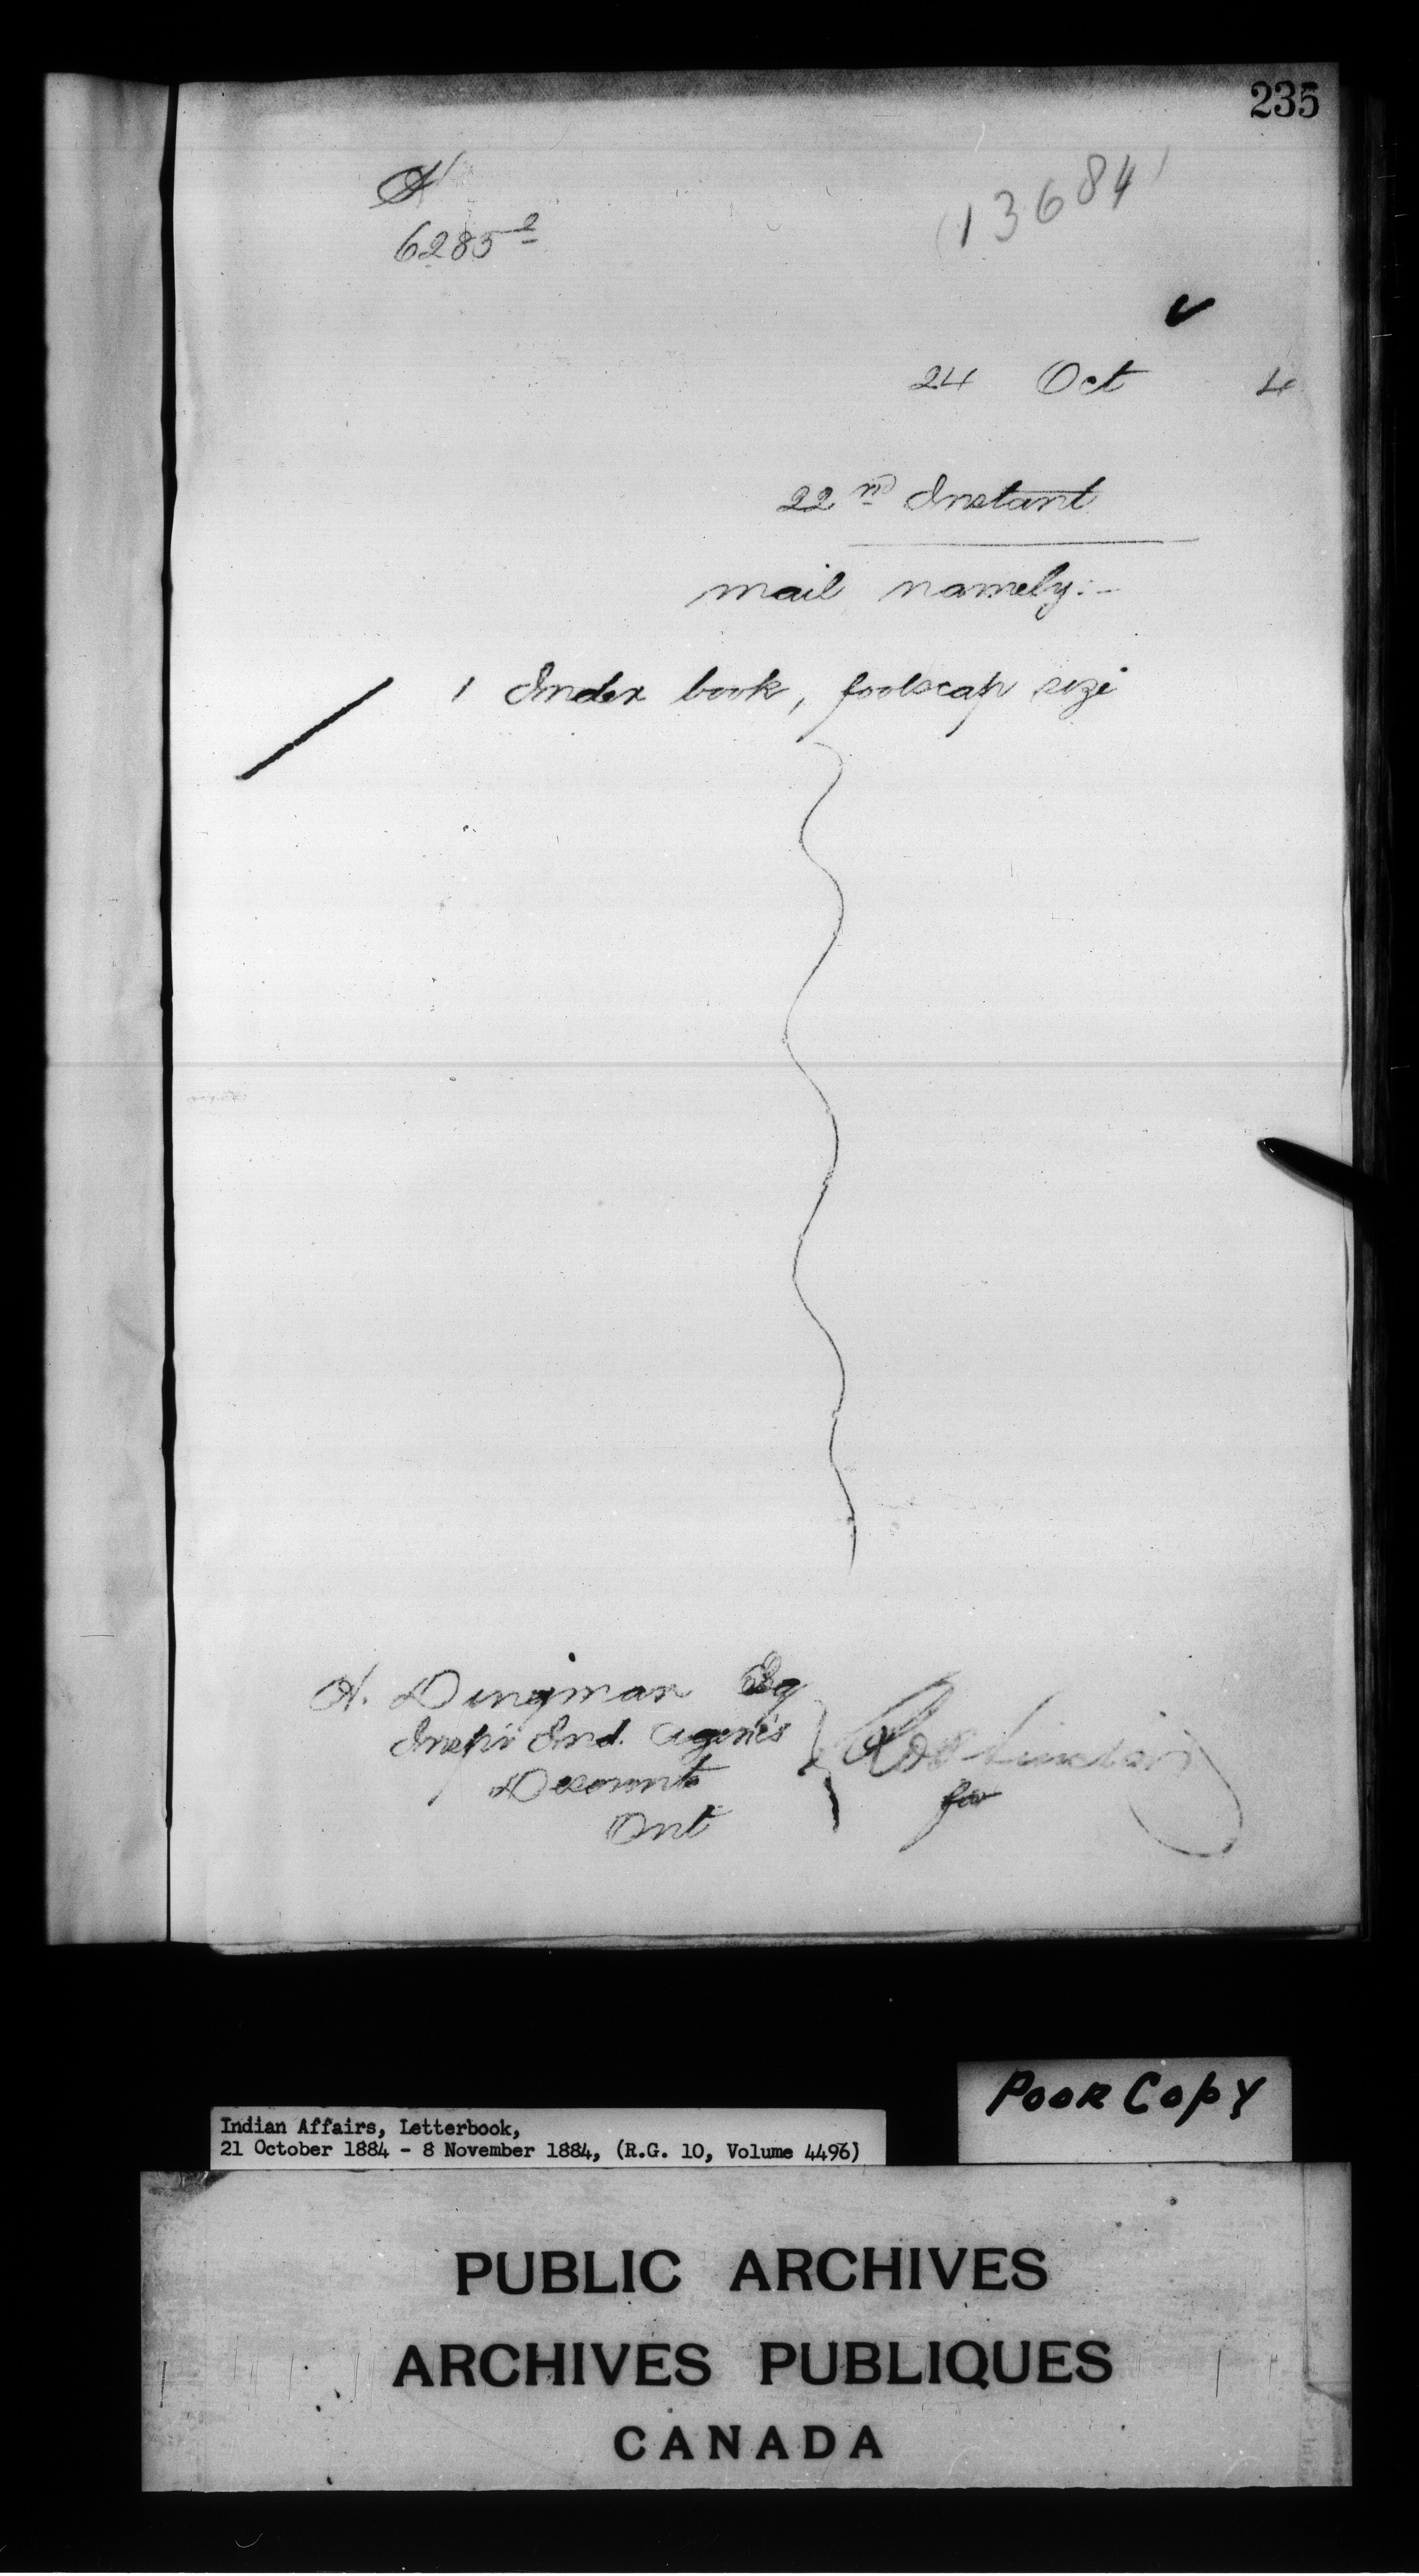 235
A
6285²
(13684)
24 Oct 4
22nd Instant
mail namely:-
1 Index book, foolscap size
A. Dingman Esq
Insp'r Ind. Agencies
Deseronto
Ont
for
Poor Copy
Indian Affairs, Letterbook,
21 October 1884 - 8 November 1884, (R.G. 10, Volume 4496)
PUBLIC ARCHIVES
ARCHIVES PUBLIQUES
CANADA